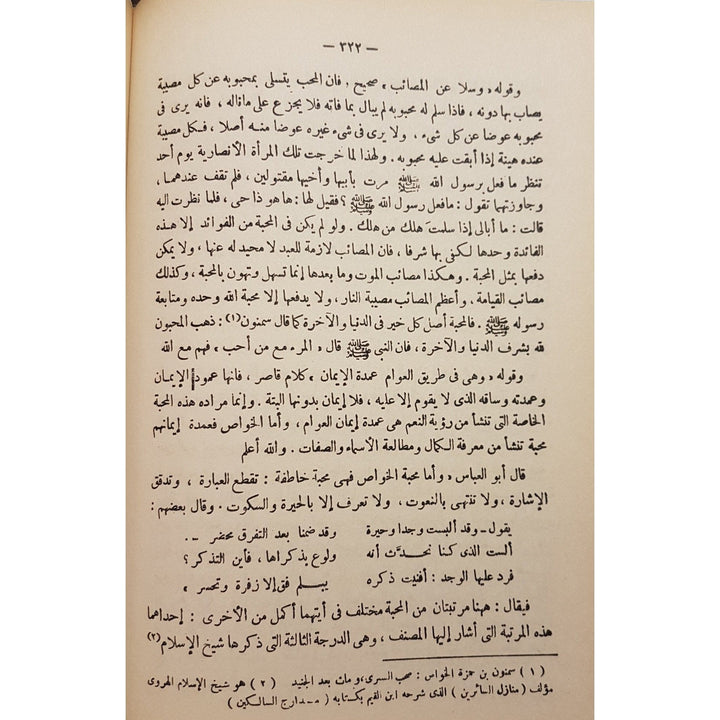 — ٣٢٢ —
وقوله « وسلا عن المصائب » صحيح ، فان المحب يتسلى بمحبوبه عن كل مصيبة
يصاب بها دونه ، فاذا سلم له محبوبه لم يبال بما فاته فلا يجزع على ماناله ، فانه يرى فى
محبوبه عوضا عن كل شىء ، ولا يرى فى شىء غيره عوضا منه أصلا ، فكل مصيبة
عنده هينة إذا أبقت عليه محبوبه . ولهذا لما خرجت تلك المرأة الأنصارية يوم أحد
تنظر ما فعل برسول الله ﷺ مرت بأبيها وأخيها مقتولين ، فلم تقف عندهما ،
وجاوزتهما تقول : مافعل رسول الله ﷺ ؟ فقيل لها : ها هو ذا حى ، فلما نظرت اليه
قالت : ما أبالى إذا سلمت هلك من هلك . ولو لم يكن فى المحبة من الفوائد إلا هذه
الفائدة وحدها لكفى بها شرفا ، فان المصائب لازمة للعبد لا محيد له عنها ، ولا يمكن
دفعها بمثل المحبة . وهكذا مصائب الموت وما بعدها إنما تسهل وتهون بالمحبة ، وكذلك
مصائب القيامة . وأعظم المصائب مصيبة النار ، ولا يدفعها إلا محبة الله وحده ومتابعة
رسوله ﷺ . فالمحبة أصل كل خير فى الدنيا والآخرة كما قال سمنون (١) : ذهب المحبون
لله بشرف الدنيا والآخرة ، فان النبى ﷺ قال « المرء مع من أحب » فهم مع الله
وقوله « وهى فى طريق العوام عمدة الإيمان » كلام قاصر ، فانها عمود الإيمان
وعمدته وساقه الذى لا يقوم إلا عليه ، فلا إيمان بدونها البتة . وإنما مراده هذه المحبة
الخاصة التى تنشأ من رؤية النعم هى عمدة إيمان العوام ، وأما الخواص فعمدة إيمانهم
محبة تنشأ من معرفة الكمال ومطالعة الأسماء والصفات . والله أعلم
قال أبو العباس « وأما محبة الخواص فهى محبة خاطفة : تقطع العبارة ، وتدقق
الإشارة ، ولا تنتهى بالنعوت ، ولا تعرف إلا بالحيرة والسكوت . وقال بعضهم :
يقول - وقد ألبست وجدا وحيرة وقد ضمنا بعد التفرق محضر - .
ألست الذى كنا نحدَّث أنه ولوع بذكراها ، فأين التذكر ؟
فرد عليها الوجد : أفنيت ذكره فلم يبق إلا زفرة وتحسر »
فيقال : ههنا مرتبتان من المحبة مختلف فى أيتهما أكمل من الأخرى : إحداهما
هذه المرتبة التى أشار إليها المصنف ، وهى الدرجة الثالثة التى ذكرها شيخ الإسلام (٢)
( ١ ) سمنون بن حمزة الخواس : صحب السرى ، ومات بعد الجنيد ( ٢ ) هو شيخ الإسلام الهروى
مؤلف ( منازل السائرين ) الذى شرحه ابن القيم بكتابه ( مدارج السالكين )